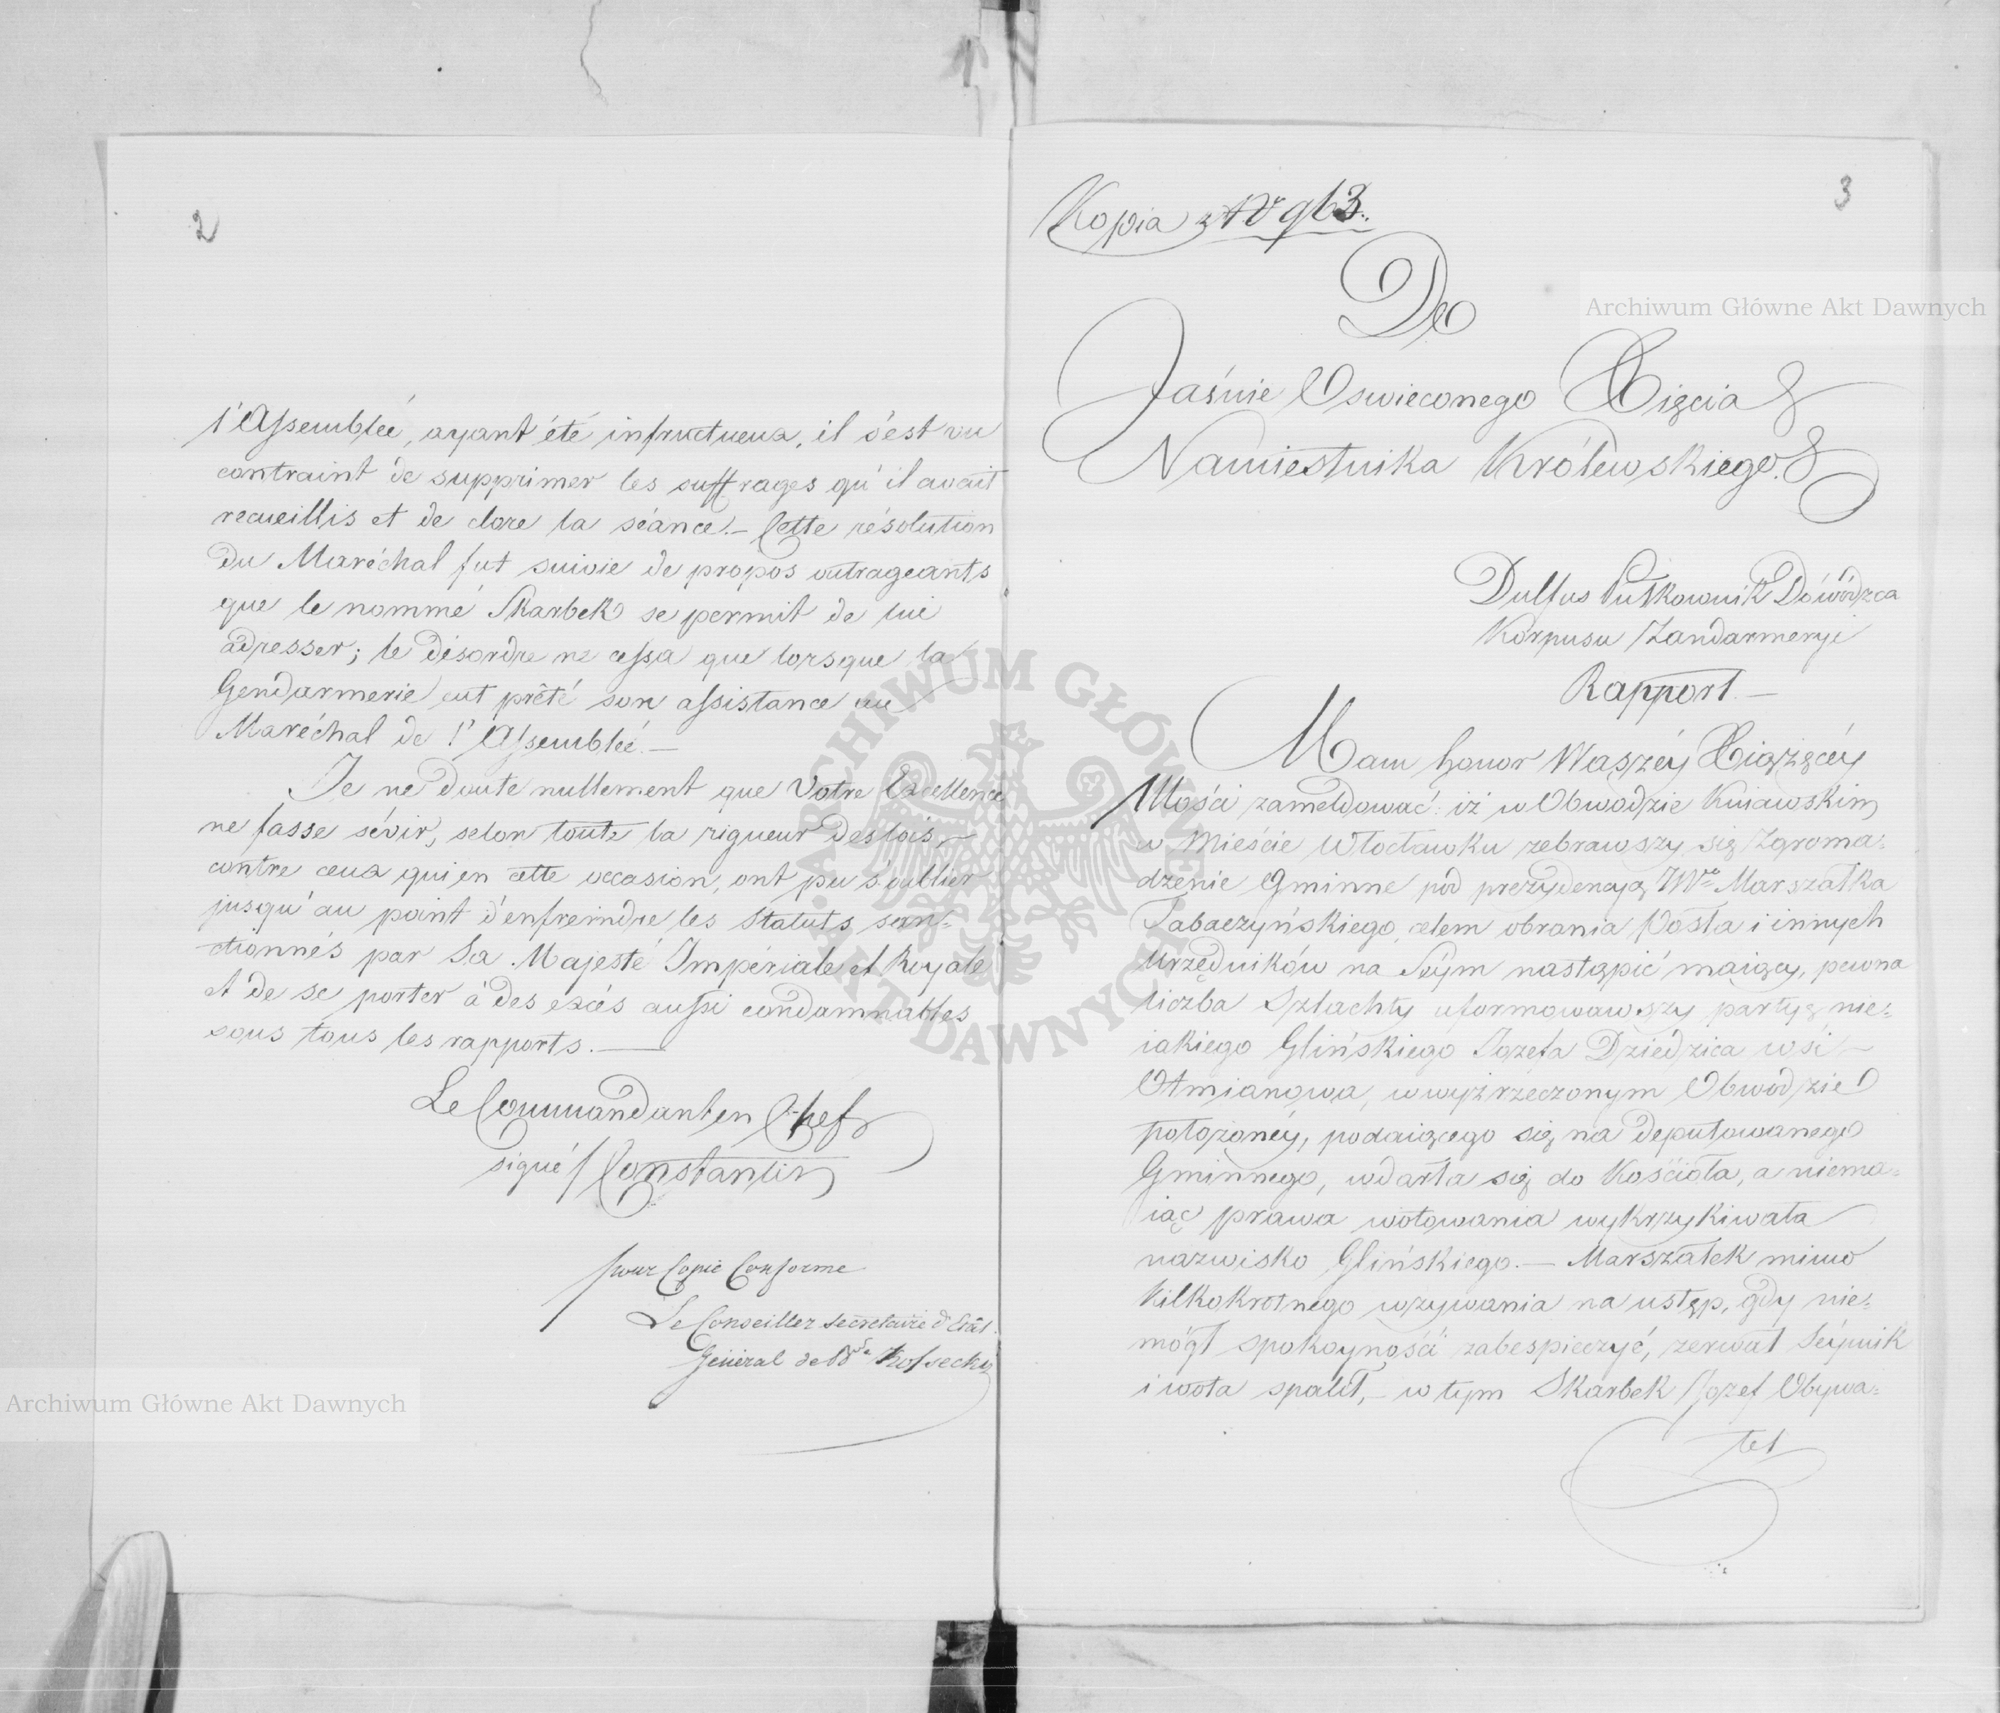 2
l'Assemblée, ayant été infructueux, il s'est vu
contraint de supprimer les suffrages qu'il avait
recueillis et de clore la séance. – Cette résolution
du Maréchal fut suivie de propos outrageants
que le nommé Skarbek se permit de lui
adresser; le désordre ne cessa que lorsque la
Gendarmerie eut prêté son assistance au
Maréchal de l'Assemblée. —
Je ne doute nullement que Votre Excellence
ne fasse sévir, selon toute la rigueur des lois,
contre ceux qui en cette occasion, ont pu s'oublier
jusqu'au point d'enfreindre les statuts san-
ctionnés par Sa Majesté Impériale et Royale
et de se porter à des excés aussi condamnables
sous tous les rapports. —
Le Commandant en Chef
signé / Constantin
pour Copie Conforme
Le Conseiller Secrétaire d'Etat
Général de Bde Kossecki
3
Kopia z Nr 963.
Do
Jaśnie Oswieconego Xięcia
Namiestnika Królewskiego.
Dulfus Pułkownik Dówódzca
Korpusu Żandarmeryi
Rapport. —
Mam honor Waszéy Xiążęcéy
Mości zameldować: iż w Obwodzie Kuiawskim
w Mieście Włocławku zebrawszy się Zgroma-
dzenie Gminne pód prezydencyą JWo Marszałka
Tabaczyńskiego, celem obrania Posła i innych
Urzędników na Séym nastąpić maiący, pewna
liczba Szlachty uformowawszy partyę nie-
iakiego Glińskiego Józefa Dziédzica wśi —
Otmianowa, w wyż rzeczonym Obwodzie
położonéy, podaiącego się na deputowanego
Gminnego, wdarła się do Kościoła, a niema-
iąc prawa wotowania wykrzykiwała
nazwisko Glińskiego. — Marszałek mimo
kilkokrotnego wzywania na ustęp, gdy nie-
mógł spokoyności zabespieczyć, zerwał Séymik
i wota spalił, – w tym Skarbek Józef Obywa-
tel
Archiwum Główne Akt Dawnych
Archiwum Główne Akt Dawnych
ARCHIWUM GŁÓWNE AKT DAWNYCH